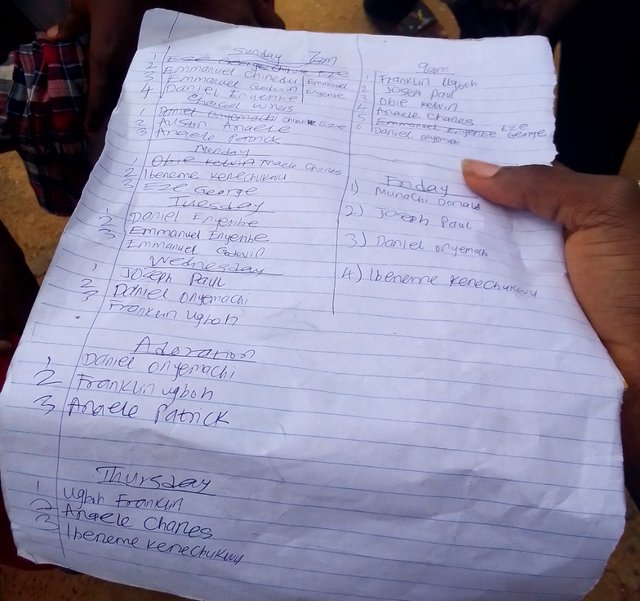 Sunday 7am
1 Eze George Chinwe Eze
2 Emmanuel Chinedu
3 Emmanuel Godwin Emmanuel
4 Daniel Enyeribe Enyeribe
Charcoal Wings
1 Daniel Onyemachi
2 Austin Anaele
3 Anaele Patrick
Monday
1 Obie Kelvin Anaele Charles
2 Ibeneme Kenechukwu
3 Eze George
Tuesday
1 Daniel Enyeribe
2 Emmanuel Enyeribe
3 Emmanuel Godwin
Wednesday
1 Joseph Paul
2 Daniel Onyemachi
3 Franklin Ugboh
Adoration
1 Daniel Onyemachi
2 Franklin Ugboh
3 Anaele Patrick
Thursday
1 Ugboh Franklin
2 Anaele Charles
3 Ibeneme Kenechukwu
9am
1 Franklin Ugboh
2 Joseph Paul
3 Obie Kelvin
4 Anaele Charles
5 Emmanuel Enyeribe Eze George
6 Daniel Onyemachi
Friday
1) Munachi Donald
2) Joseph Paul
3) Daniel Onyemachi
4) Ibeneme Kenechukwu